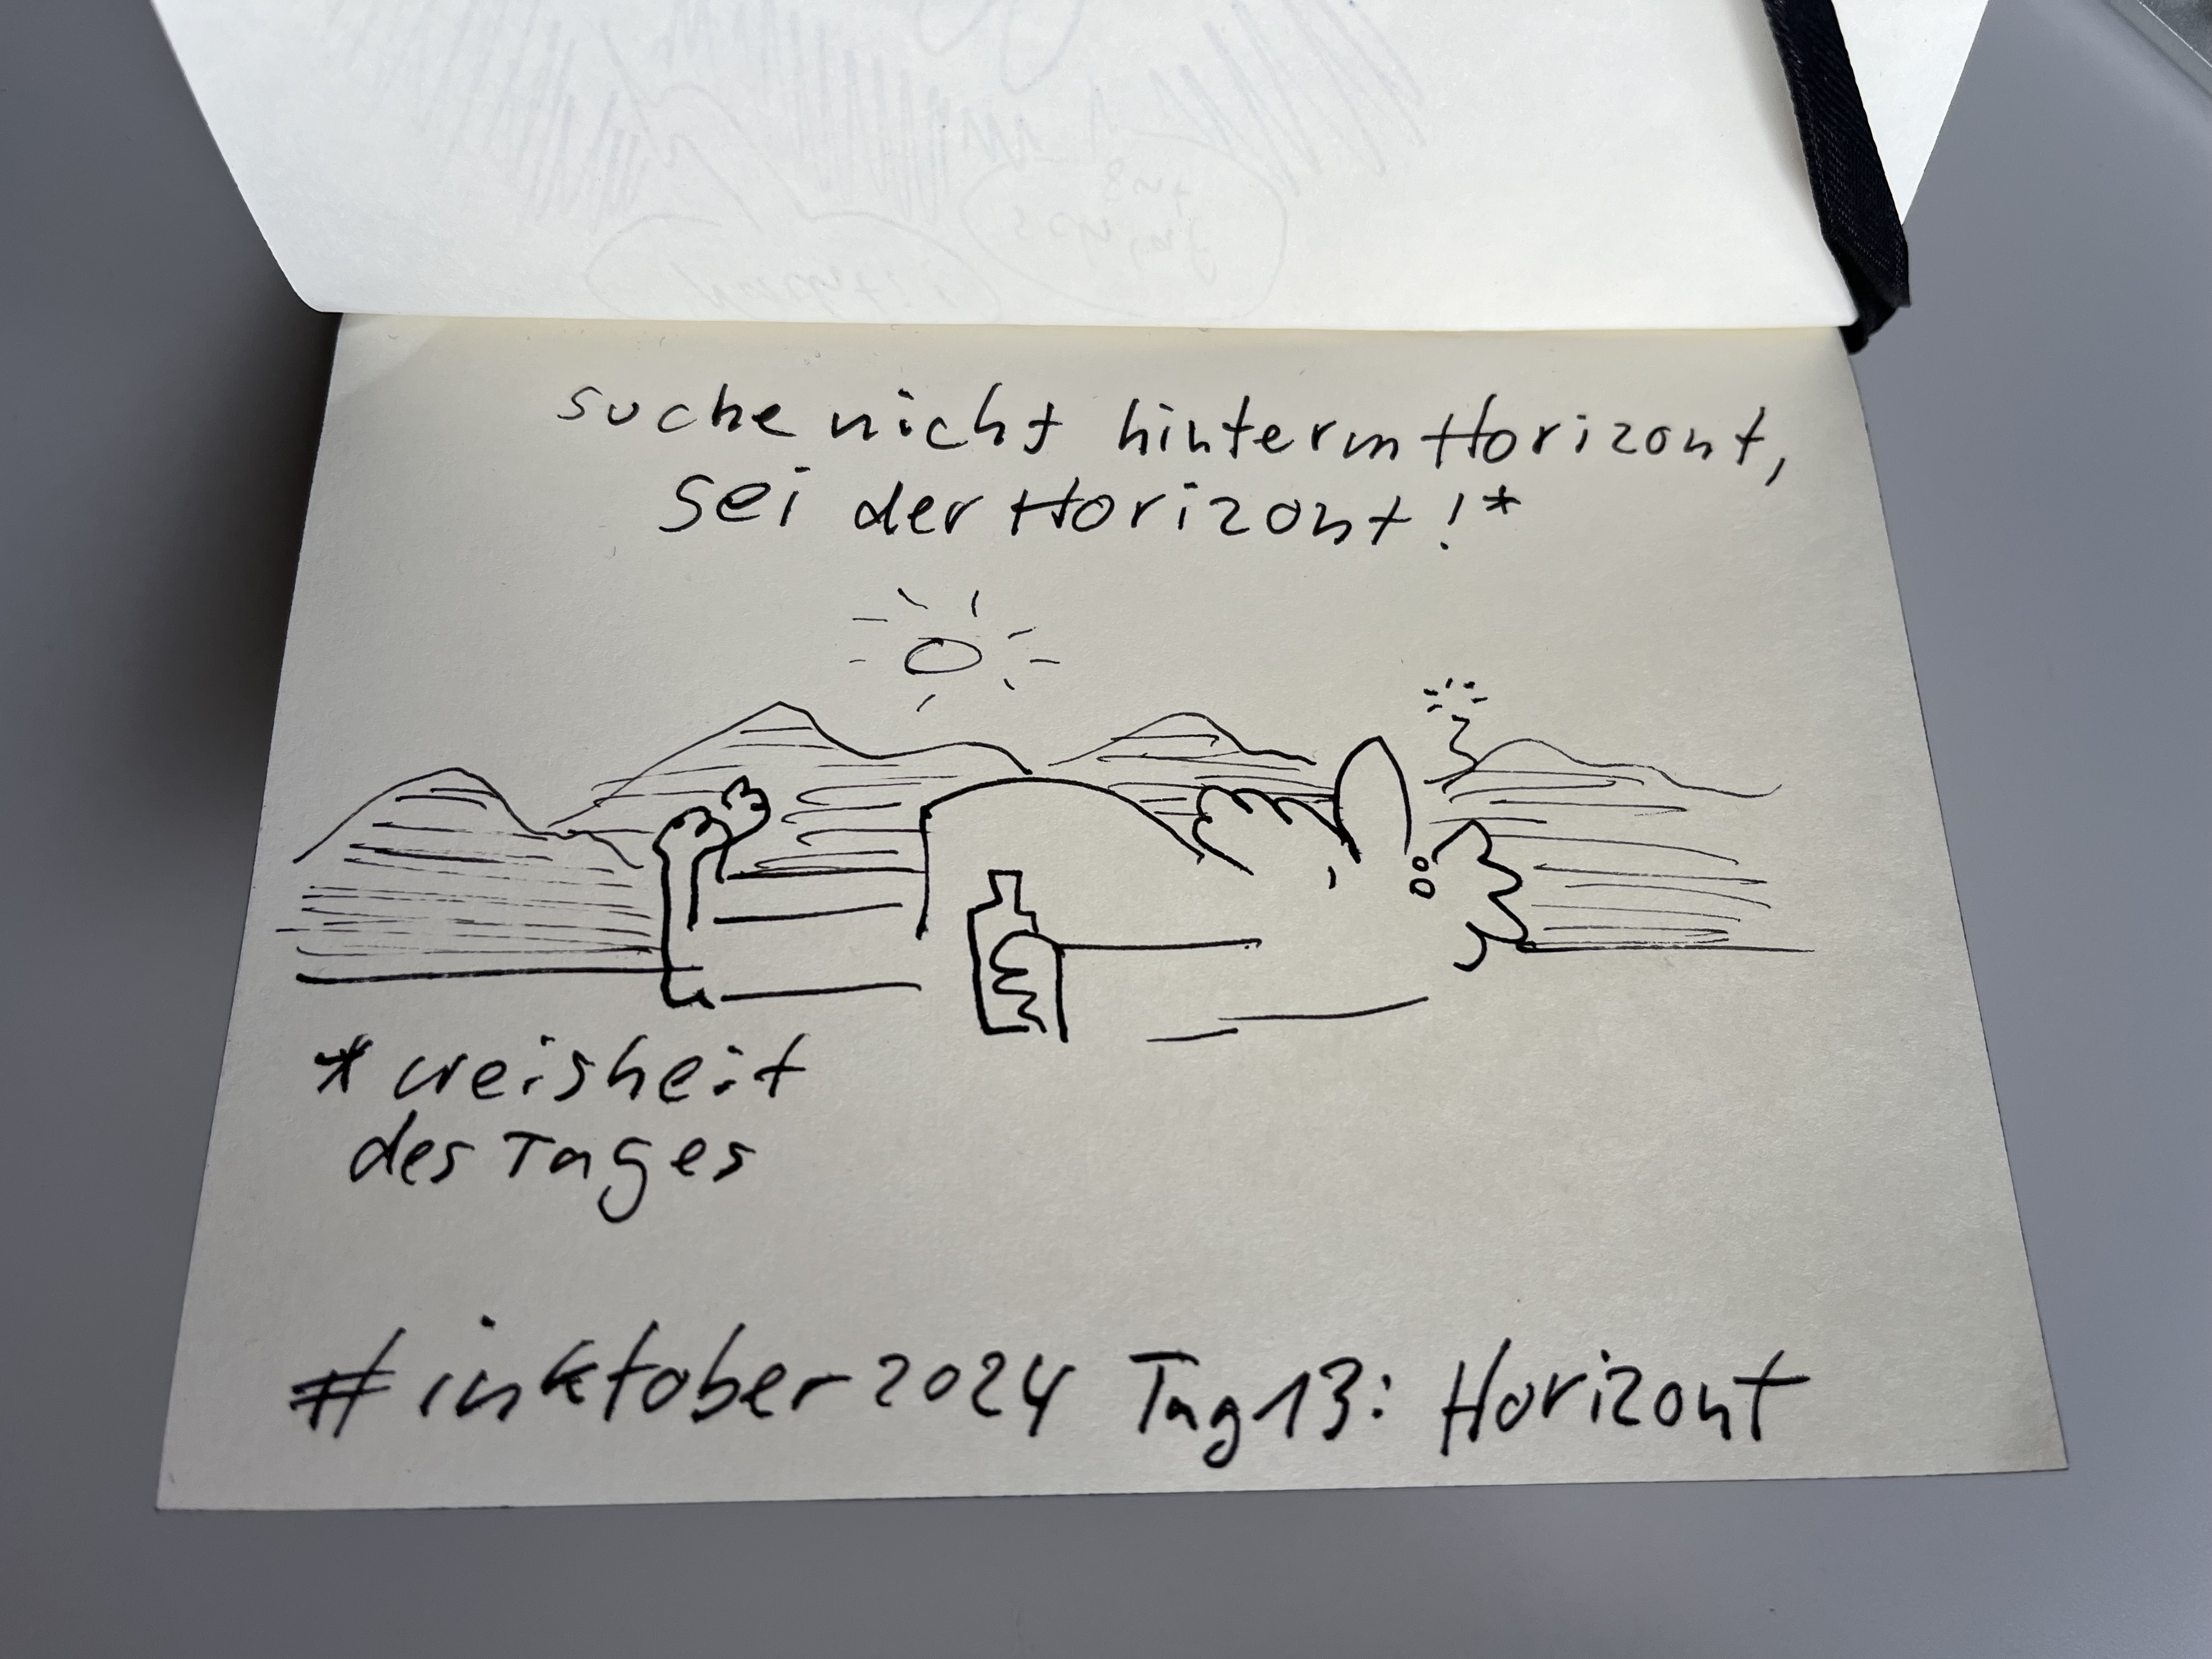 suche nicht hinterm Horizont,
sei der Horizont!*
* weisheit
des Tages
#inktober2024 Tag 13: Horizont